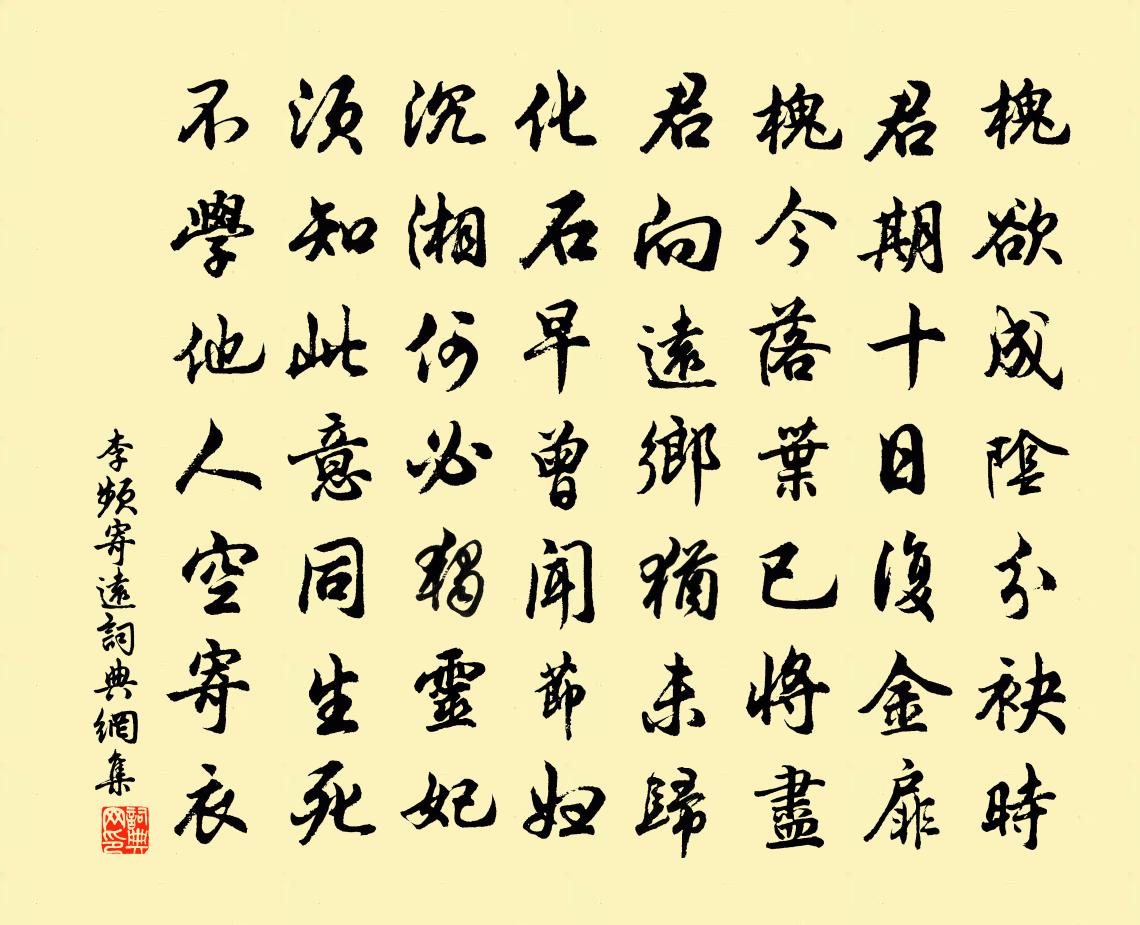 槐欲成陰分袂時
君期十日復金扉
槐今落葉已將盡
君向遠鄉猶未歸
化石早曾聞節婦
沉湘何必獨靈妃
須知此意同生死
不學他人空寄衣
李頻寄遠詞典網集
詞典网印